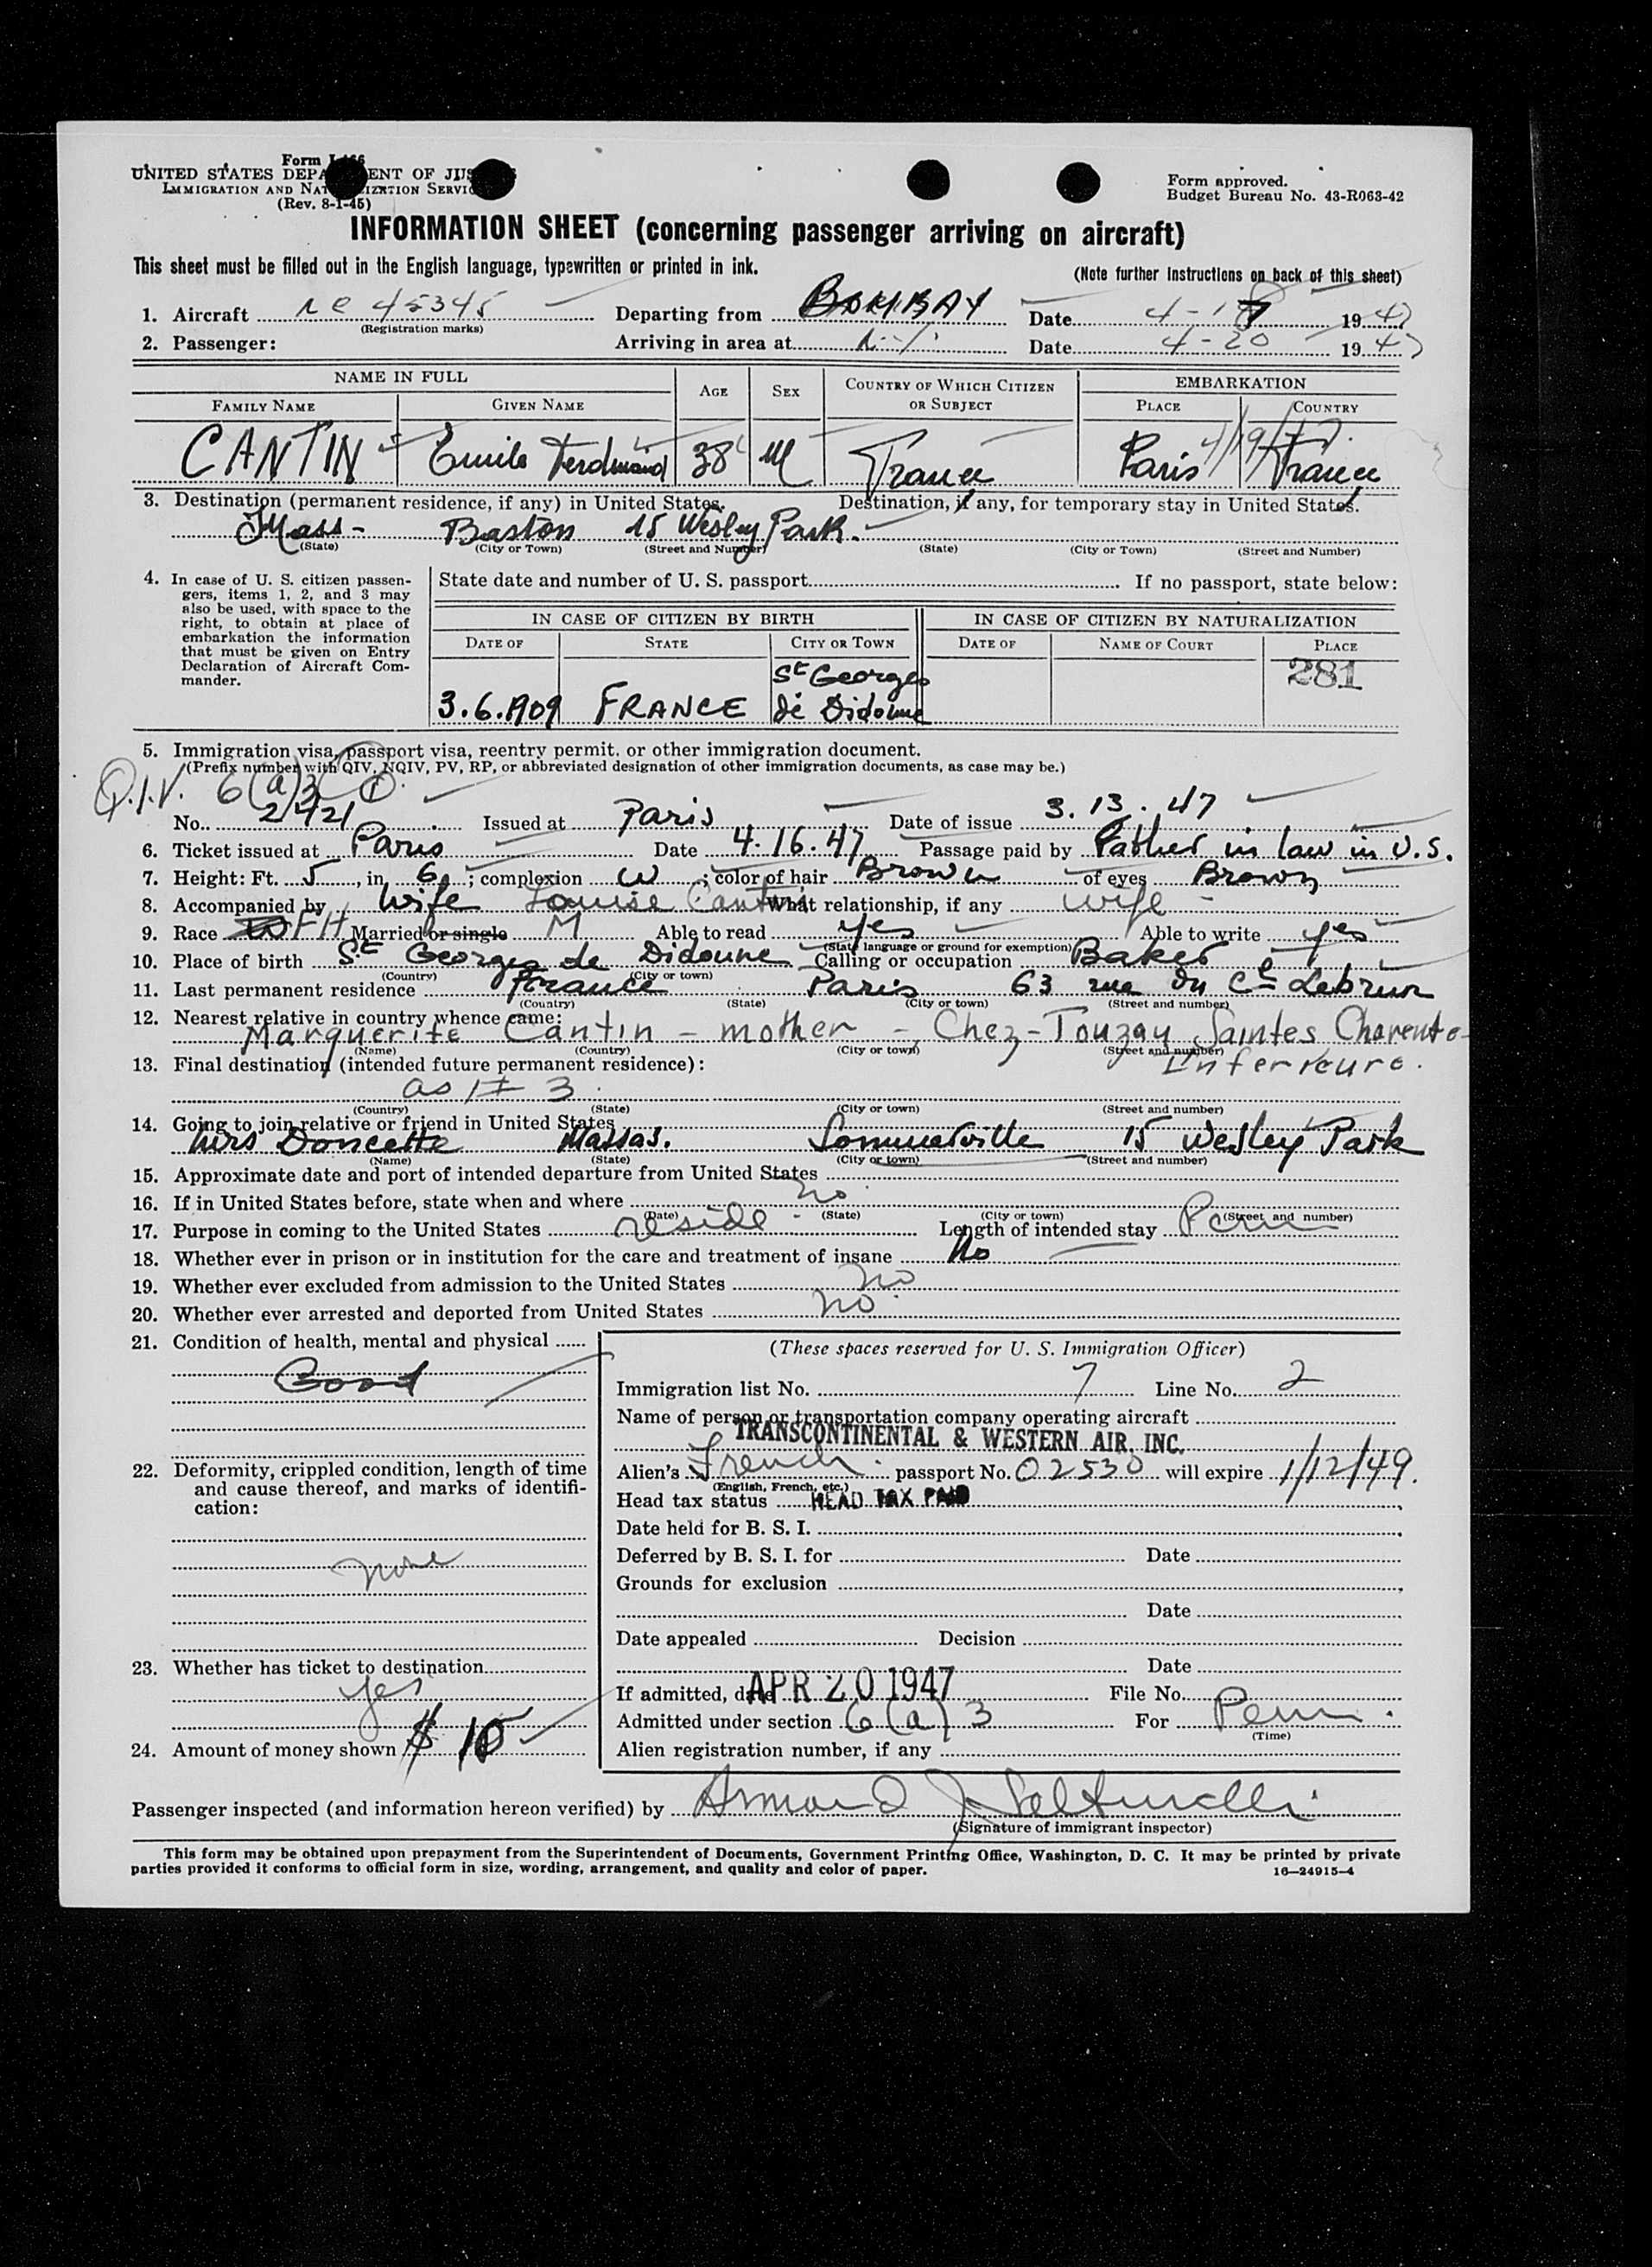 Form I-466
UNITED STATES DEPARTMENT OF JUSTICE
IMMIGRATION AND NATURALIZATION SERVICE
(Rev. 8-1-45)
Form approved.
Budget Bureau No. 43-R063-42
INFORMATION SHEET (concerning passenger arriving on aircraft)
This sheet must be filled out in the English language, typewritten or printed in ink.
(Note further instructions on back of this sheet)
1. Aircraft NC 45345 Departing from BOMBAY Date 4-17 1947
(Registration marks)
2. Passenger: Arriving in area at N.Y. Date 4-20 1947
NAME IN FULL AGE SEX COUNTRY OF WHICH CITIZEN OR SUBJECT EMBARKATION
FAMILY NAME GIVEN NAME PLACE COUNTRY
CANTIN Emile Ferdinand 38 M France Paris 4/19/47. France
3. Destination (permanent residence, if any) in United States. Destination, if any, for temporary stay in United States.
Mass- Baston 15 Wesley Park.
(State) (City or Town) (Street and Number) (State) (City or Town) (Street and Number)
4. In case of U. S. citizen passengers, items 1, 2, and 3 may also be used, with space to the right, to obtain at place of embarkation the information that must be given on Entry Declaration of Aircraft Commander.
State date and number of U. S. passport If no passport, state below:
IN CASE OF CITIZEN BY BIRTH IN CASE OF CITIZEN BY NATURALIZATION
DATE OF STATE CITY OR TOWN DATE OF NAME OF COURT PLACE
281
3.6.1909 FRANCE St Georges de Didonne
5. Immigration visa, passport visa, reentry permit, or other immigration document.
(Prefix number with QIV, NQIV, PV, RP, or abbreviated designation of other immigration documents, as case may be.)
Q.I.V. 6(a)3 1
No. 2421 Issued at Paris Date of issue 3.13.47
6. Ticket issued at Paris Date 4.16.47 Passage paid by Father in law in U.S.
7. Height: Ft. 5, in 6; complexion W; color of hair Brown of eyes Brown
8. Accompanied by wife Louise Cantin What relationship, if any wife
9. Race FH Married or single M Able to read yes Able to write yes
(State language or ground for exemption)
10. Place of birth St Georges de Didonne Calling or occupation Baker
(Country) (City or town)
11. Last permanent residence France Paris 63 rue du Ct Lebrun
(Country) (State) (City or town) (Street and number)
12. Nearest relative in country whence came:
Marguerite Cantin - mother - Chez-Touzay Saintes Charente-
(Name) (Country) (City or town) (Street and number)
Inferieure.
13. Final destination (intended future permanent residence):
as # 3
(Country) (State) (City or town) (Street and number)
14. Going to join relative or friend in United States
Mrs Doncette Massas. Sommerville 15 Wesley Park
(Name) (State) (City or town) (Street and number)
15. Approximate date and port of intended departure from United States
16. If in United States before, state when and where no
(Date) (State) (City or town) (Street and number)
17. Purpose in coming to the United States reside - Length of intended stay Perm
18. Whether ever in prison or in institution for the care and treatment of insane No
19. Whether ever excluded from admission to the United States no
20. Whether ever arrested and deported from United States no
21. Condition of health, mental and physical
Good
22. Deformity, crippled condition, length of time and cause thereof, and marks of identification:
none
23. Whether has ticket to destination
yes
24. Amount of money shown $ 10
(These spaces reserved for U. S. Immigration Officer)
Immigration list No. 7 Line No. 2
Name of person or transportation company operating aircraft
TRANSCONTINENTAL & WESTERN AIR, INC.
Alien's French passport No. 02530 will expire 1/12/49.
(English, French, etc.)
Head tax status HEAD TAX PAID
Date held for B. S. I.
Deferred by B. S. I. for Date
Grounds for exclusion
Date
Date appealed Decision
Date
If admitted, date APR 20 1947 File No.
Admitted under section 6(a)3 For Perm.
(Time)
Alien registration number, if any
Passenger inspected (and information hereon verified) by Armand J.
(Signature of immigrant inspector)
This form may be obtained upon prepayment from the Superintendent of Documents, Government Printing Office, Washington, D. C. It may be printed by private
parties provided it conforms to official form in size, wording, arrangement, and quality and color of paper. 16—24915-4